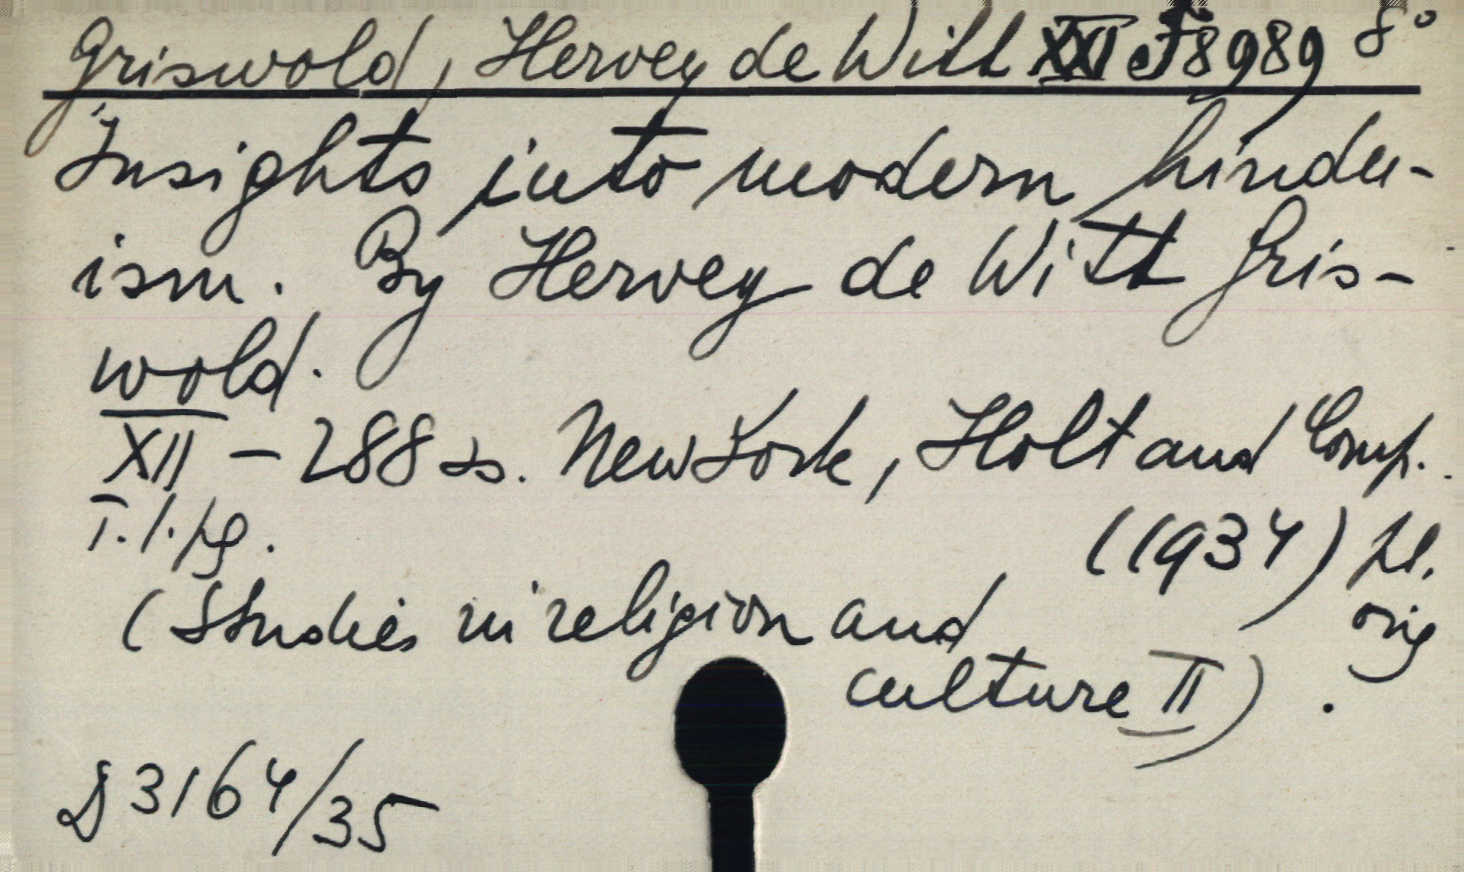 Griswold, Hervey de Witt XXI f 8989 8°
Insights into modern hindu-
ism. By Hervey de Witt Gris-
wold.
XII - 288 s. New York, Holt and Comp.
T. l. pg. (1934) pl.
(Studies in religion and orig
culture II).
3164/35